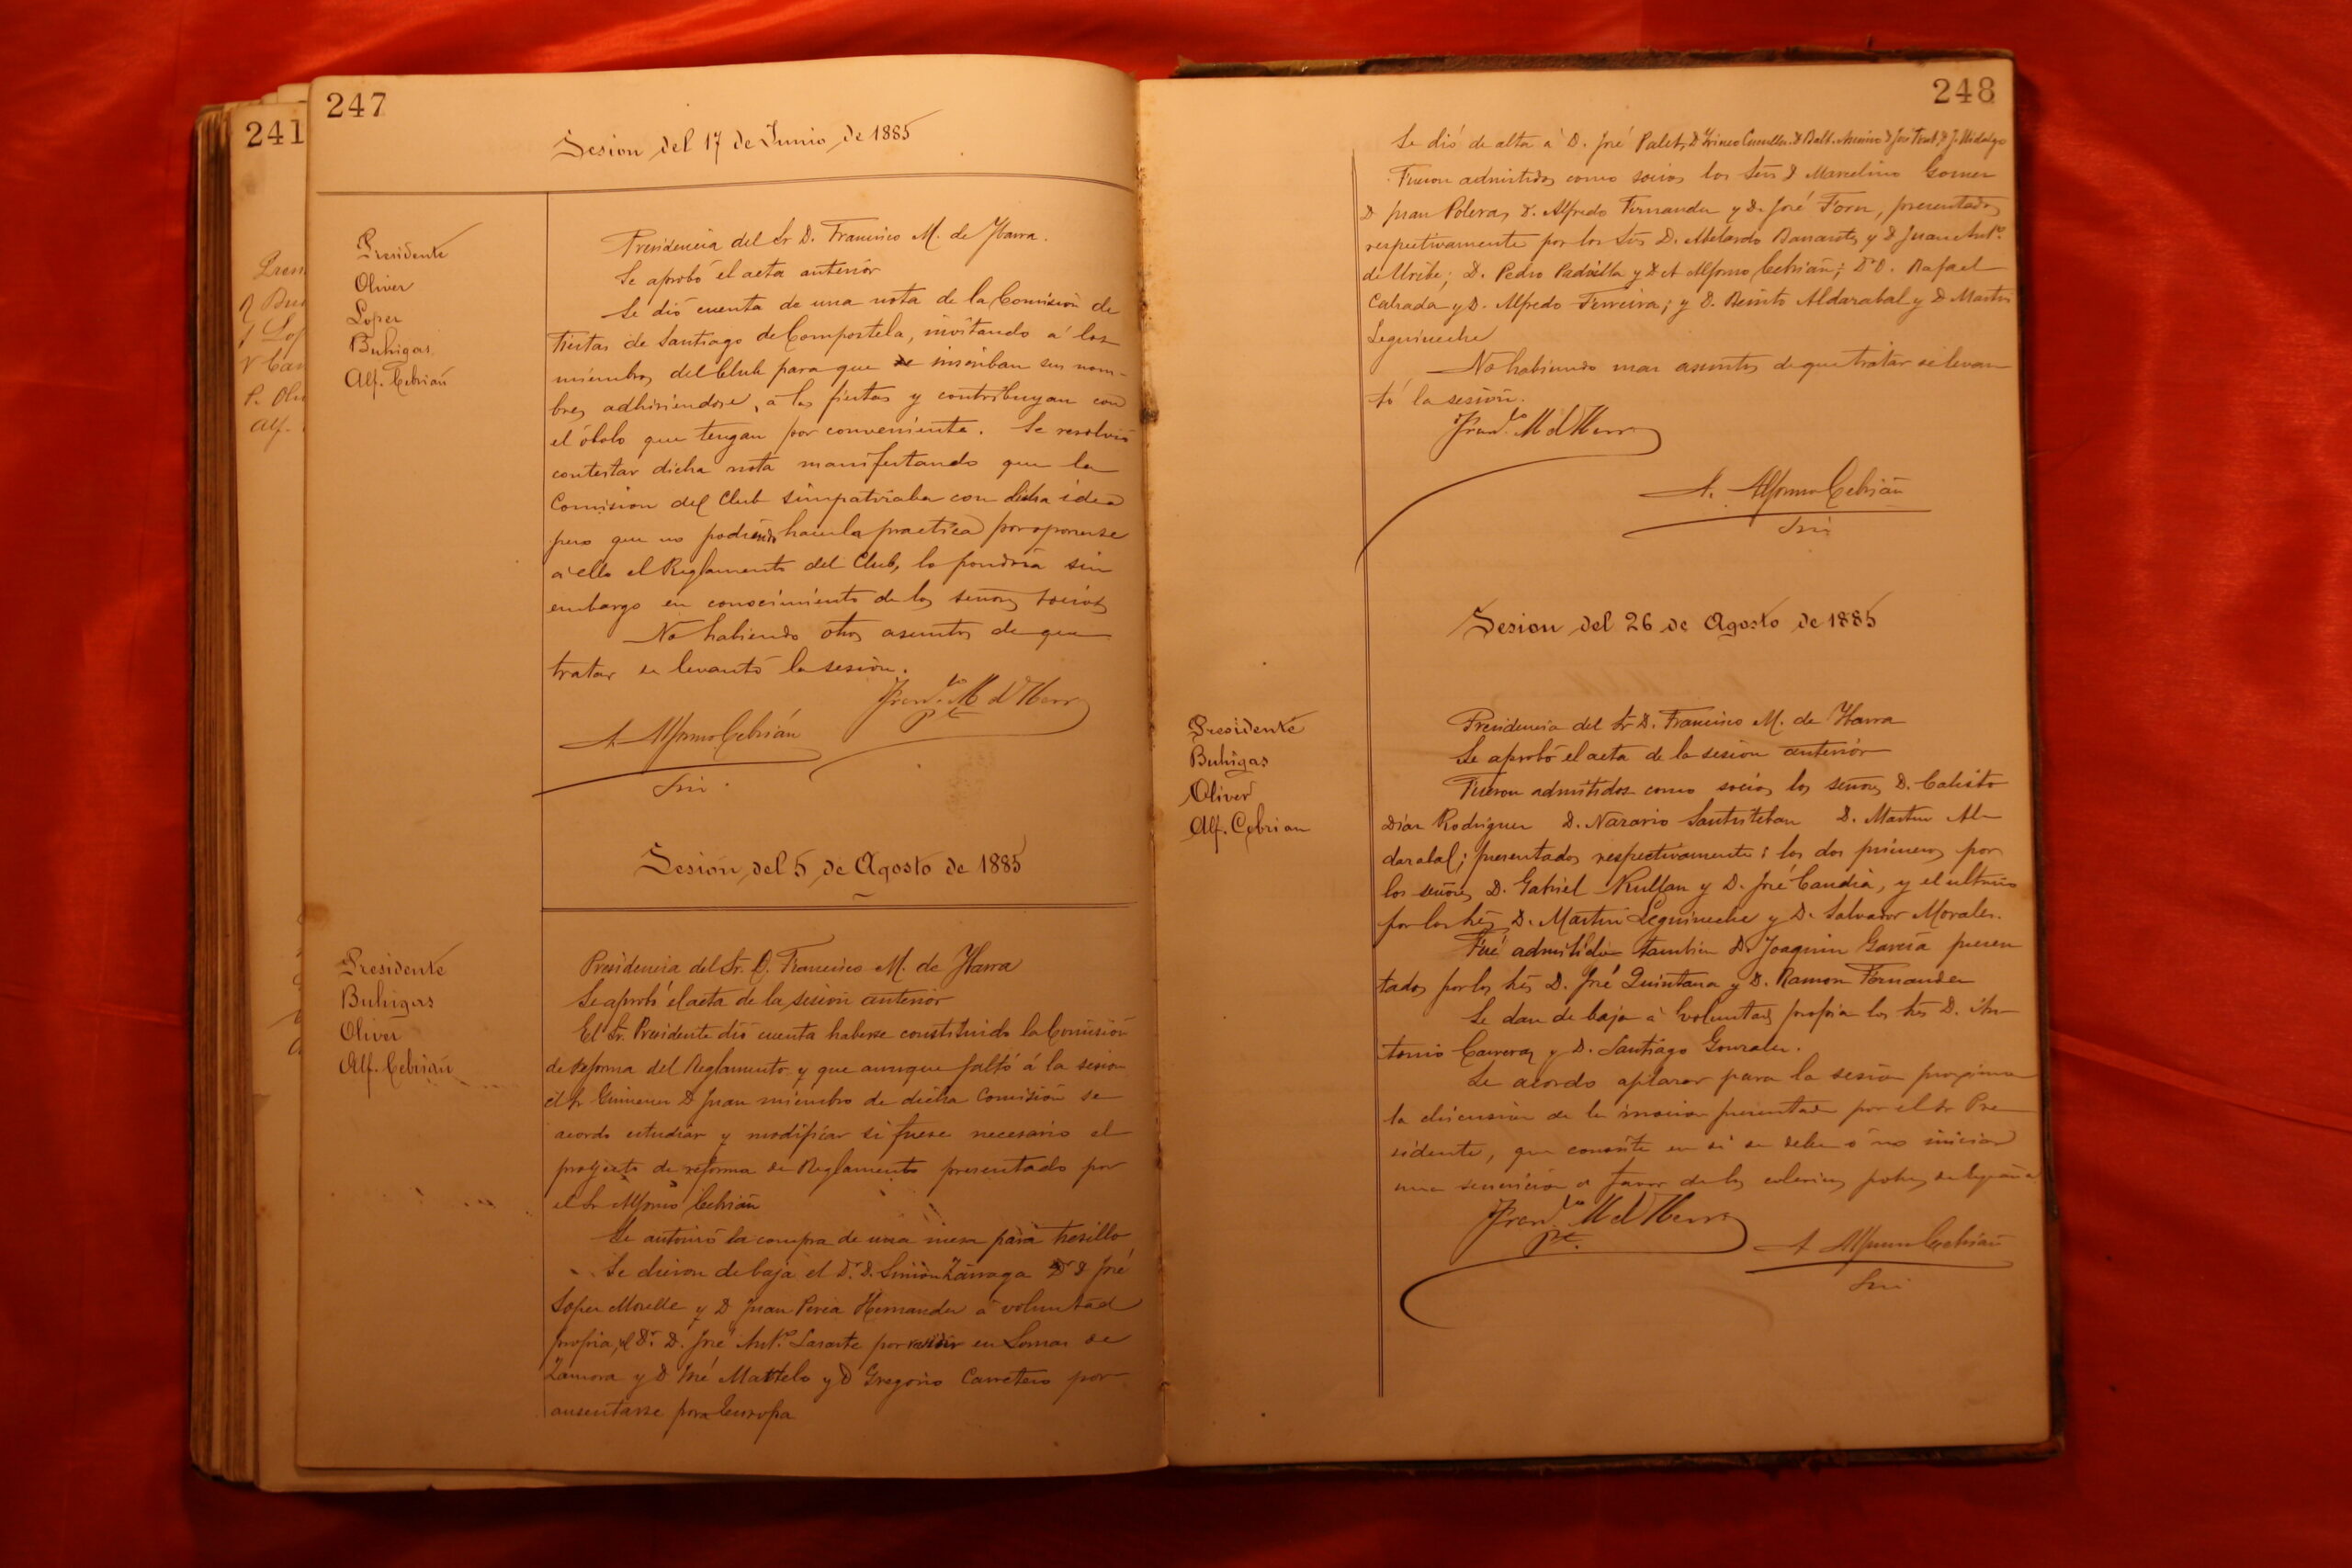 241
247
Sesion del 17 de Junio de 1885
Presidente
Oliver
Loper
Buhigas
Alf. Cebrián
Presidencia del Sr D. Francisco M. de Ybarra.
Se aprobó el acta anterior
Se dió cuenta de una nota de la Comision de
fiestas de Santiago de Compostela, invitando á los
miembros del Club para que se inscriban sus nom-
bres adhiriendose, a las fiestas y contribuyan con
el óbolo que tengan por conveniente. Se resolvió
contestar dicha nota manifestando que la
Comision del Club simpatizaba con dicha idea
pero que no podiendo hacerla practica por oponerse
a ello el Reglamento del Club, lo pondría sin
embargo en conocimiento de los señores socios
No habiendo otros asuntos de que
tratar se levantó la sesión.
Franco M de Ybarra
Pte
A. Alfonso Cebrián
Srio
Sesion del 5 de Agosto de 1885
Presidente
Buhigas
Oliver
Alf. Cebrián
Presidencia del Sr. D. Francisco M. de Ybarra
Se aprobó el acta de la sesion anterior
El Sr. Presidente dió cuenta haberse constituido la Comisión
de Reforma del Reglamento y que aunque faltó á la sesion
el Sr Gimenez D Juan miembro de dicha Comisión se
acordo estudiar y modificar si fuese necesario el
proyecto de reforma de Reglamento presentado por
el Sr Alfonso Cebrián
Se autorizó la compra de una mesa para tresillo
Se dieron de baja el Dr. D. Simón Zárraga D José
Loper Morelle y D Juan Perea Hernandez a voluntad
propia, el Dr. D. José Anto. Lasarte por residir en Lomas de
Zamora y D José Mattelo y D Gregorio Carretero por
ausentarse para Europa
248
Se dió de alta a D. José Palet, D Irineo D Balt. D José D J. Hidalgo
Fueron admitidos como socios los Srs D Marcelino Gomez
D Juan Poleras D. Alfredo Fernandez y D. José Forn, presentados
respectivamente por los Srs D. Abelardo Barrantes y D Juan Anto.
de Uribe; D. Pedro Padilla y D A Alfonso Cebrián; Dr D. Rafael
Calzada y D. Alfredo Ferreira; y D. Benito Aldazabal y D Martin
Leguineche
No habiendo mas asuntos de que tratar se levan
tó la sesión.
Franco M de Ybarra
A. Alfonso Cebrián
Srio
Sesion del 26 de Agosto de 1885
Presidente
Buhigas
Oliver
Alf. Cebrian
Presidencia del Sr D. Francisco M. de Ybarra
Se aprobó el acta de la sesion anterior
Fueron admitidos como socios los señores D. Calisto
Diaz Rodriguez D. Nazario Santisteban D. Martin Al-
dazabal; presentados respectivamente: los dos primeros por
los señores D. Gabriel y D. José Candia, y el ultimo
por los Srs D. Martin Leguineche y D. Salvador Morales.
Fué admitido tambien D. Joaquin García presen
tado por los Srs D. José Quintana y D. Ramon Fernandez
Se dan de baja a voluntad propia los Srs D. An-
tonio Carreras y D. Santiago Gonzalez.
Se acordo aplazar para la sesion proxima
la discusión de la mocion presentada por el Sr Pre
sidente, que consiste en si se debe ó no iniciar
una suscricion a favor de los colericos pobres de España
Franco M de Ybarra
Pte.
A Alfonso Cebrián
Srio